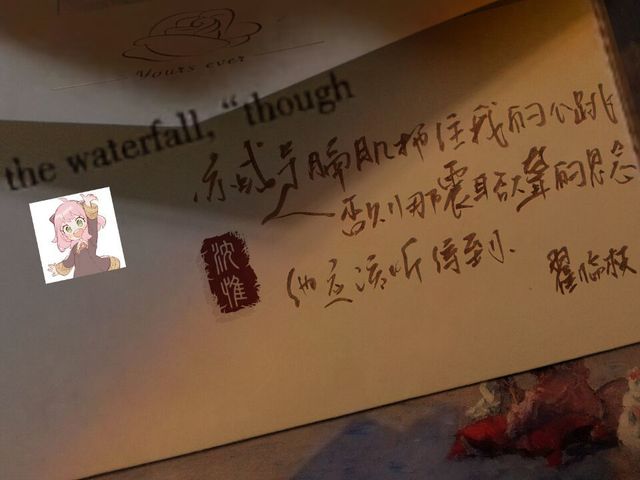 Yours ever
the waterfall, “though
膈肌捂住我的心跳
否则那震耳欲聋的思念
他应该听得到.
沈惟